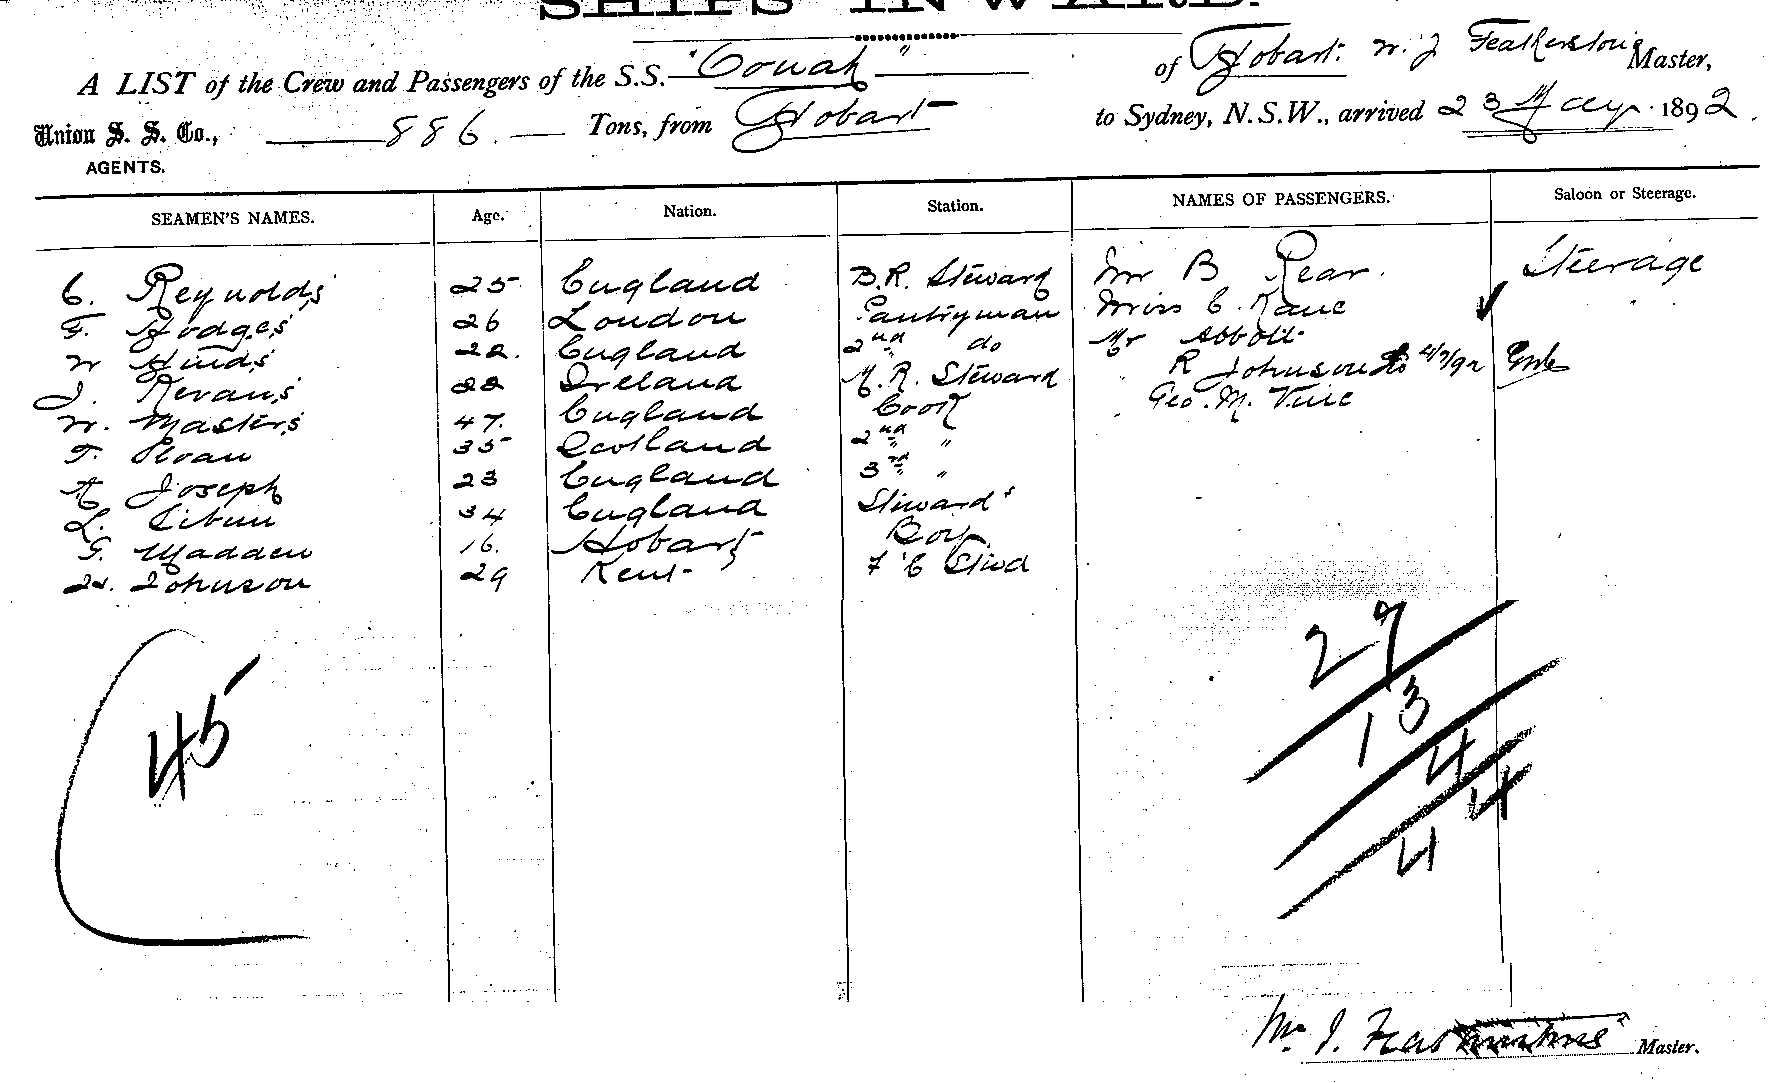 SHIPS INWARD.
A LIST of the Crew and Passengers of the S.S. "Oonah" of Hobart. W. J Featherstone Master,
Union S. S. Co., 886. Tons, from Hobart to Sydney, N.S.W., arrived 23 May 1892.
AGENTS.
SEAMEN'S NAMES. Age. Nation. Station. NAMES OF PASSENGERS. Saloon or Steerage.
C. Reynolds 25 England B.R. Steward Mr B Rear. Steerage
F. Hodges 26 London Pantryman Miss C. Kane
W Hinds 22. England 2nd do Mr Abbott
J. Kevans 22 Ireland M.R. Steward R Johnson
W. Masters 47. England Cook Geo. M. 
T. Sloan 35 Scotland 2nd "
A Joseph 23 England 3rd "
L. 34 England Steward's
G. Madden 16. Hobart Boy
W. Johnson 29 Kent F C Stwd
45
27
13
4
44
Master.